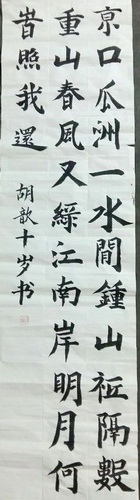 京口瓜洲一水間鍾山祗隔數
重山春風又綠江南岸明月何
旹照我還
胡歆十岁书